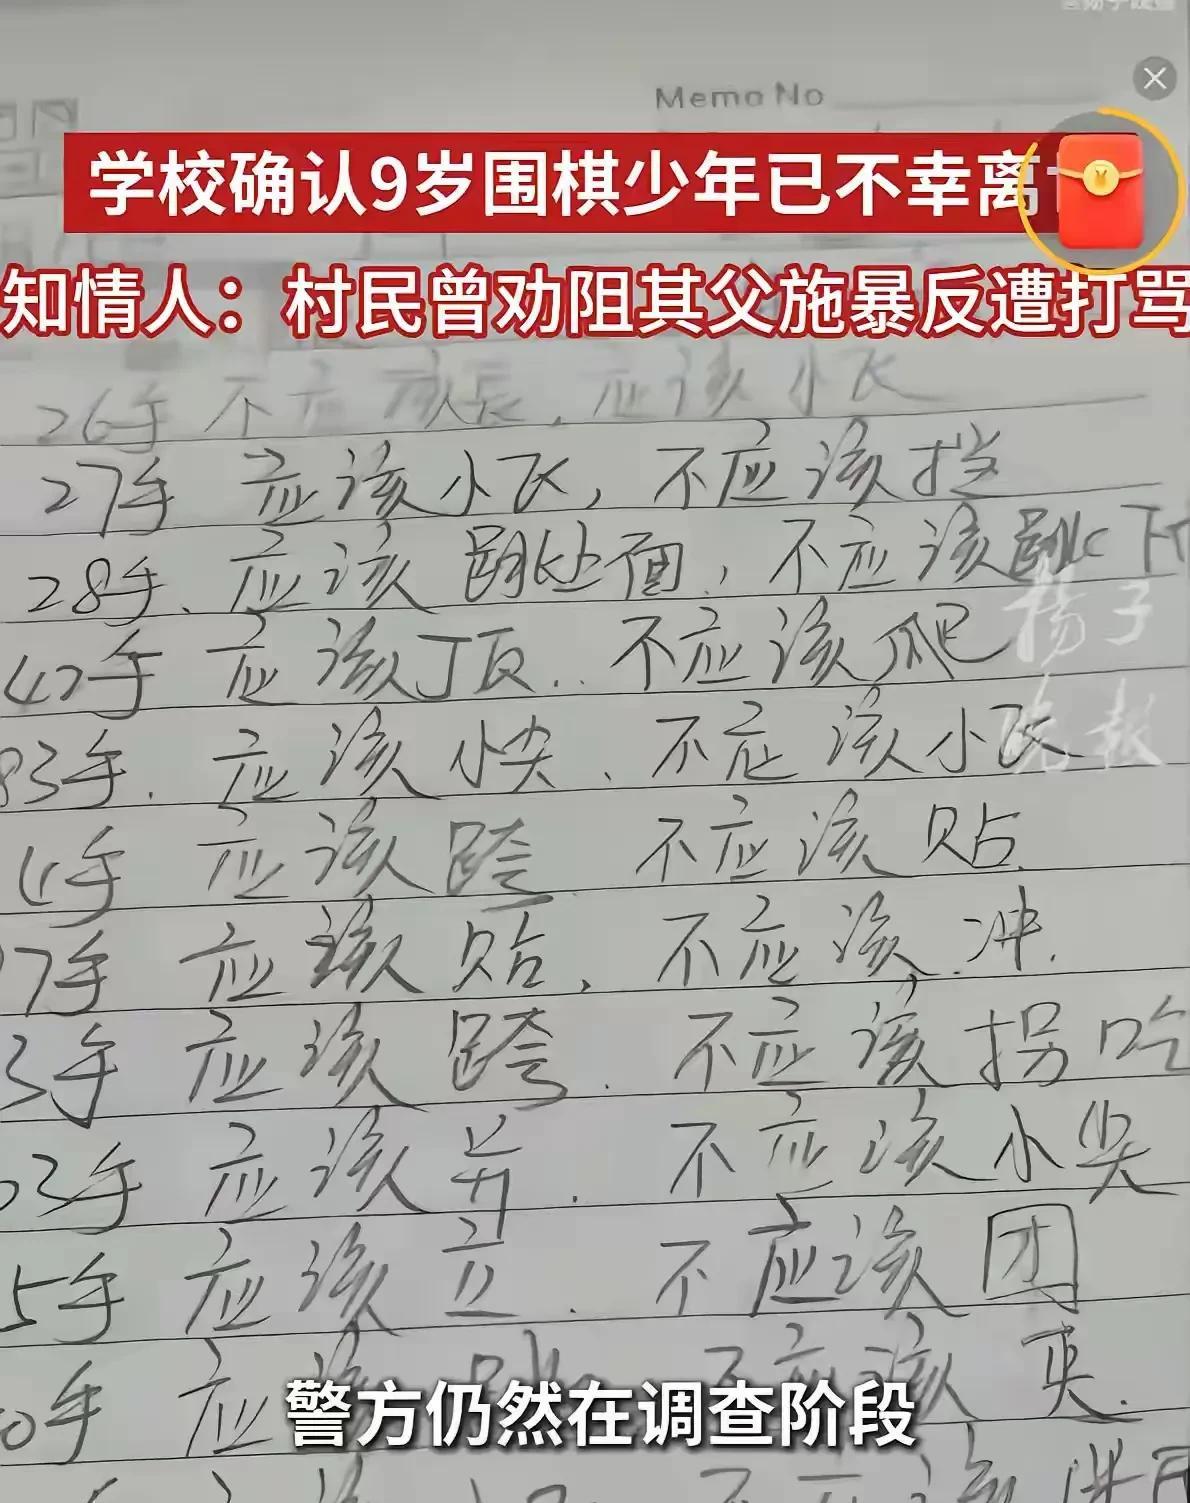 Memo No
学校确认9岁围棋少年已不幸离
知情人：村民曾劝阻其父施暴反遭打骂
26手 不应该长，应该小飞
27手 应该小飞，不应该挡
28手、应该跳处面，不应该跳下
扬子
晚报
42手 应该顶..不应该爬
83手.应该小尖、不应该小飞
手 应该跨、不应该贴.
7手 应该贴，不应该冲.
3手 应该跨.不应该拐吃
03手 应该并.不应该小尖
5手 应该立.不应该团
0手 应该 不应该夹.
警方仍然在调查阶段